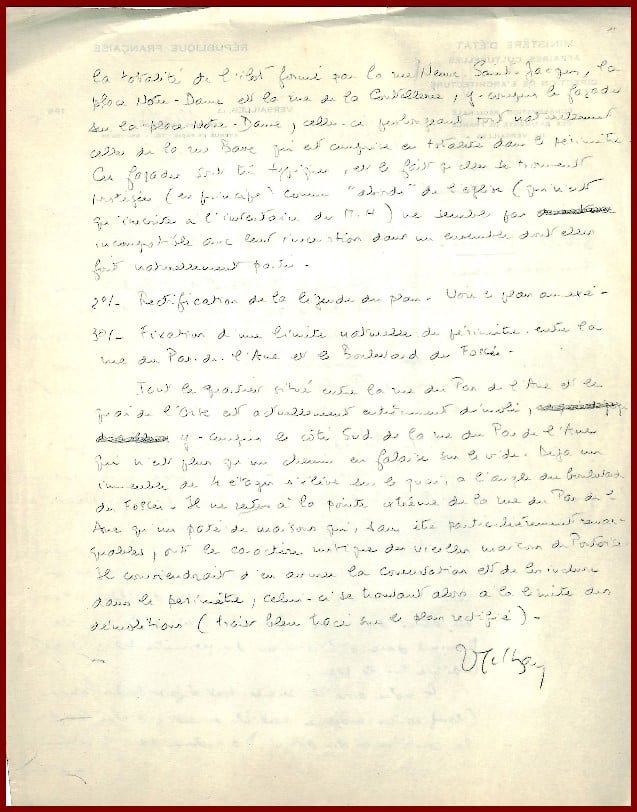 la totalité de l'ilot formé par la rue Neuve Saint-Jacques, la
place Notre-Dame et la rue de la Coutellerie, y-compris les façades
sur la place Notre-Dame, celles-ci prolongeant tout naturellement
celles de la rue Basse qui est comprise en totalité dans le périmètre.
Ces façades sont très typiques, et le fait qu'elles se trouvent
protégées (en principe) comme "abords" de l'église (qui n'est
qu'inscrite à l'inventaire des M.H) ne semble pas
incompatible avec leur insertion dans un ensemble dont elles
font naturellement partie -
2°/- Rectification de la légende du plan - Voir le plan annexé -
3°/- Fixation d'une limite naturelle du périmètre entre la
rue du Pas-de-l'Ane et le Boulevard des Fossés -
Tout le quartier situé entre la rue du Pas de l'Ane et le
quai de l'Oise est actuellement entièrement démoli,
y-compris le côté Sud de la rue du Pas de l'Ane
qui n'est plus qu'un chemin en falaise sur le vide. Déjà un
immeuble de 4 étages s'élève sur le quai, à l'angle du boulevard
des Fossés - Il ne reste à la pointe extrême de la rue du Pas de l'
Ane qu'un paté de maisons qui, sans être particulièrement remar-
quables, ont le caractère rustique des vieilles maisons de Pontoise
Il conviendrait d'en assurer la conservation et de les inclure
dans le périmètre, celui-ci se trouvant alors à la limite des
démolitions (trait bleu tracé sur le plan rectifié) -
RÉPUBLIQUE FRANÇAISE
MINISTÈRE D'ÉTAT
AFFAIRES CULTURELLES
VERSAILLES